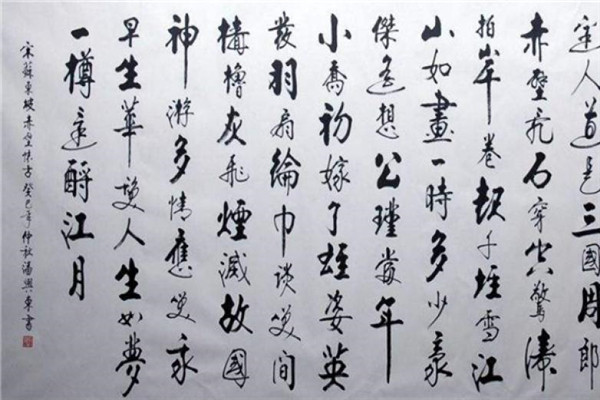 人道是三國周郎
赤壁亂石穿空驚濤
拍岸卷起千堆雪江
山如畫一時多少豪
傑遙想公瑾當年
小喬初嫁了雄姿英
發羽扇綸巾談笑間
檣櫓灰飛煙滅故國
神游多情應笑我
早生華髮人生如夢
一樽還酹江月
宋蘇東坡赤壁懷古癸巳年仲秋潘興東書